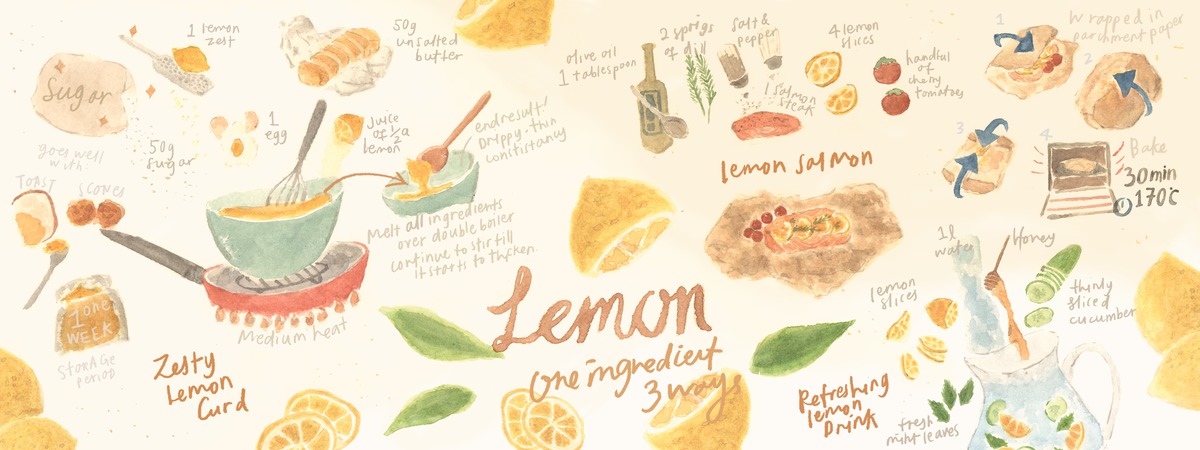 1 lemon
zest
50g
unsalted
butter
Sugar
50g
sugar
1
egg
Juice
of 1/2 a
lemon
end result/
Drippy, thin
constistancy
goes well
with:
TOAST
SCONES
Melt all ingredients
over double boiler
continue to stir till
it starts to thicken.
1 one
WEEK
STORAGE
period
Medium heat
Zesty
Lemon
Curd
Lemon
One ingredient
3 ways
olive oil
1 tablespoon
2 sprigs
of dill
Salt &
pepper
1 Salmon
steak
4 lemon
slices
handful
of
cherry
tomatoes
lemon salmon
1
Wrapped in
parchment paper
2
3
4
Bake
30min
170°C
1l
water
Honey
lemon
slices
thinly
sliced
cucumber
Refreshing
lemon
Drink
fresh
mint leaves